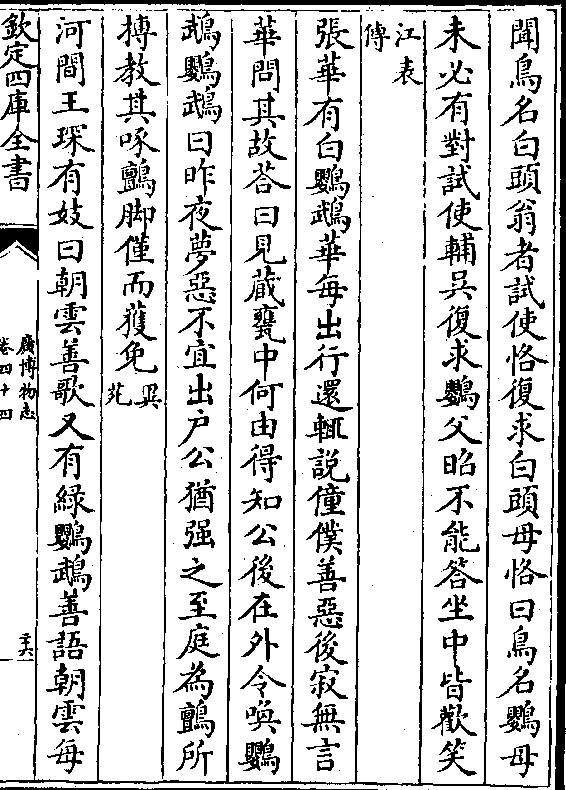 聞鳥名白頭翁者試使恪復求白頭母恪曰鳥名鸚母
未必有對試使輔吳復求鸚父昭不能答坐中皆歡笑
江表
傳
張華有白鸚鵡華每出行還輒説僮僕善惡後寂無言
華問其故荅曰見蔵甕中何由得知公後在外令喚鸚
鵡鸚鵡曰昨夜夢惡不宜出户公猶强之至庭為鸇所
搏教其啄鸇脚僅而獲免
異
苑
河間王琛有妓曰朝雲善歌又有緑鸚鵡善語朝雲每
欽定四庫全書
廣博物志
卷四十四
二十六